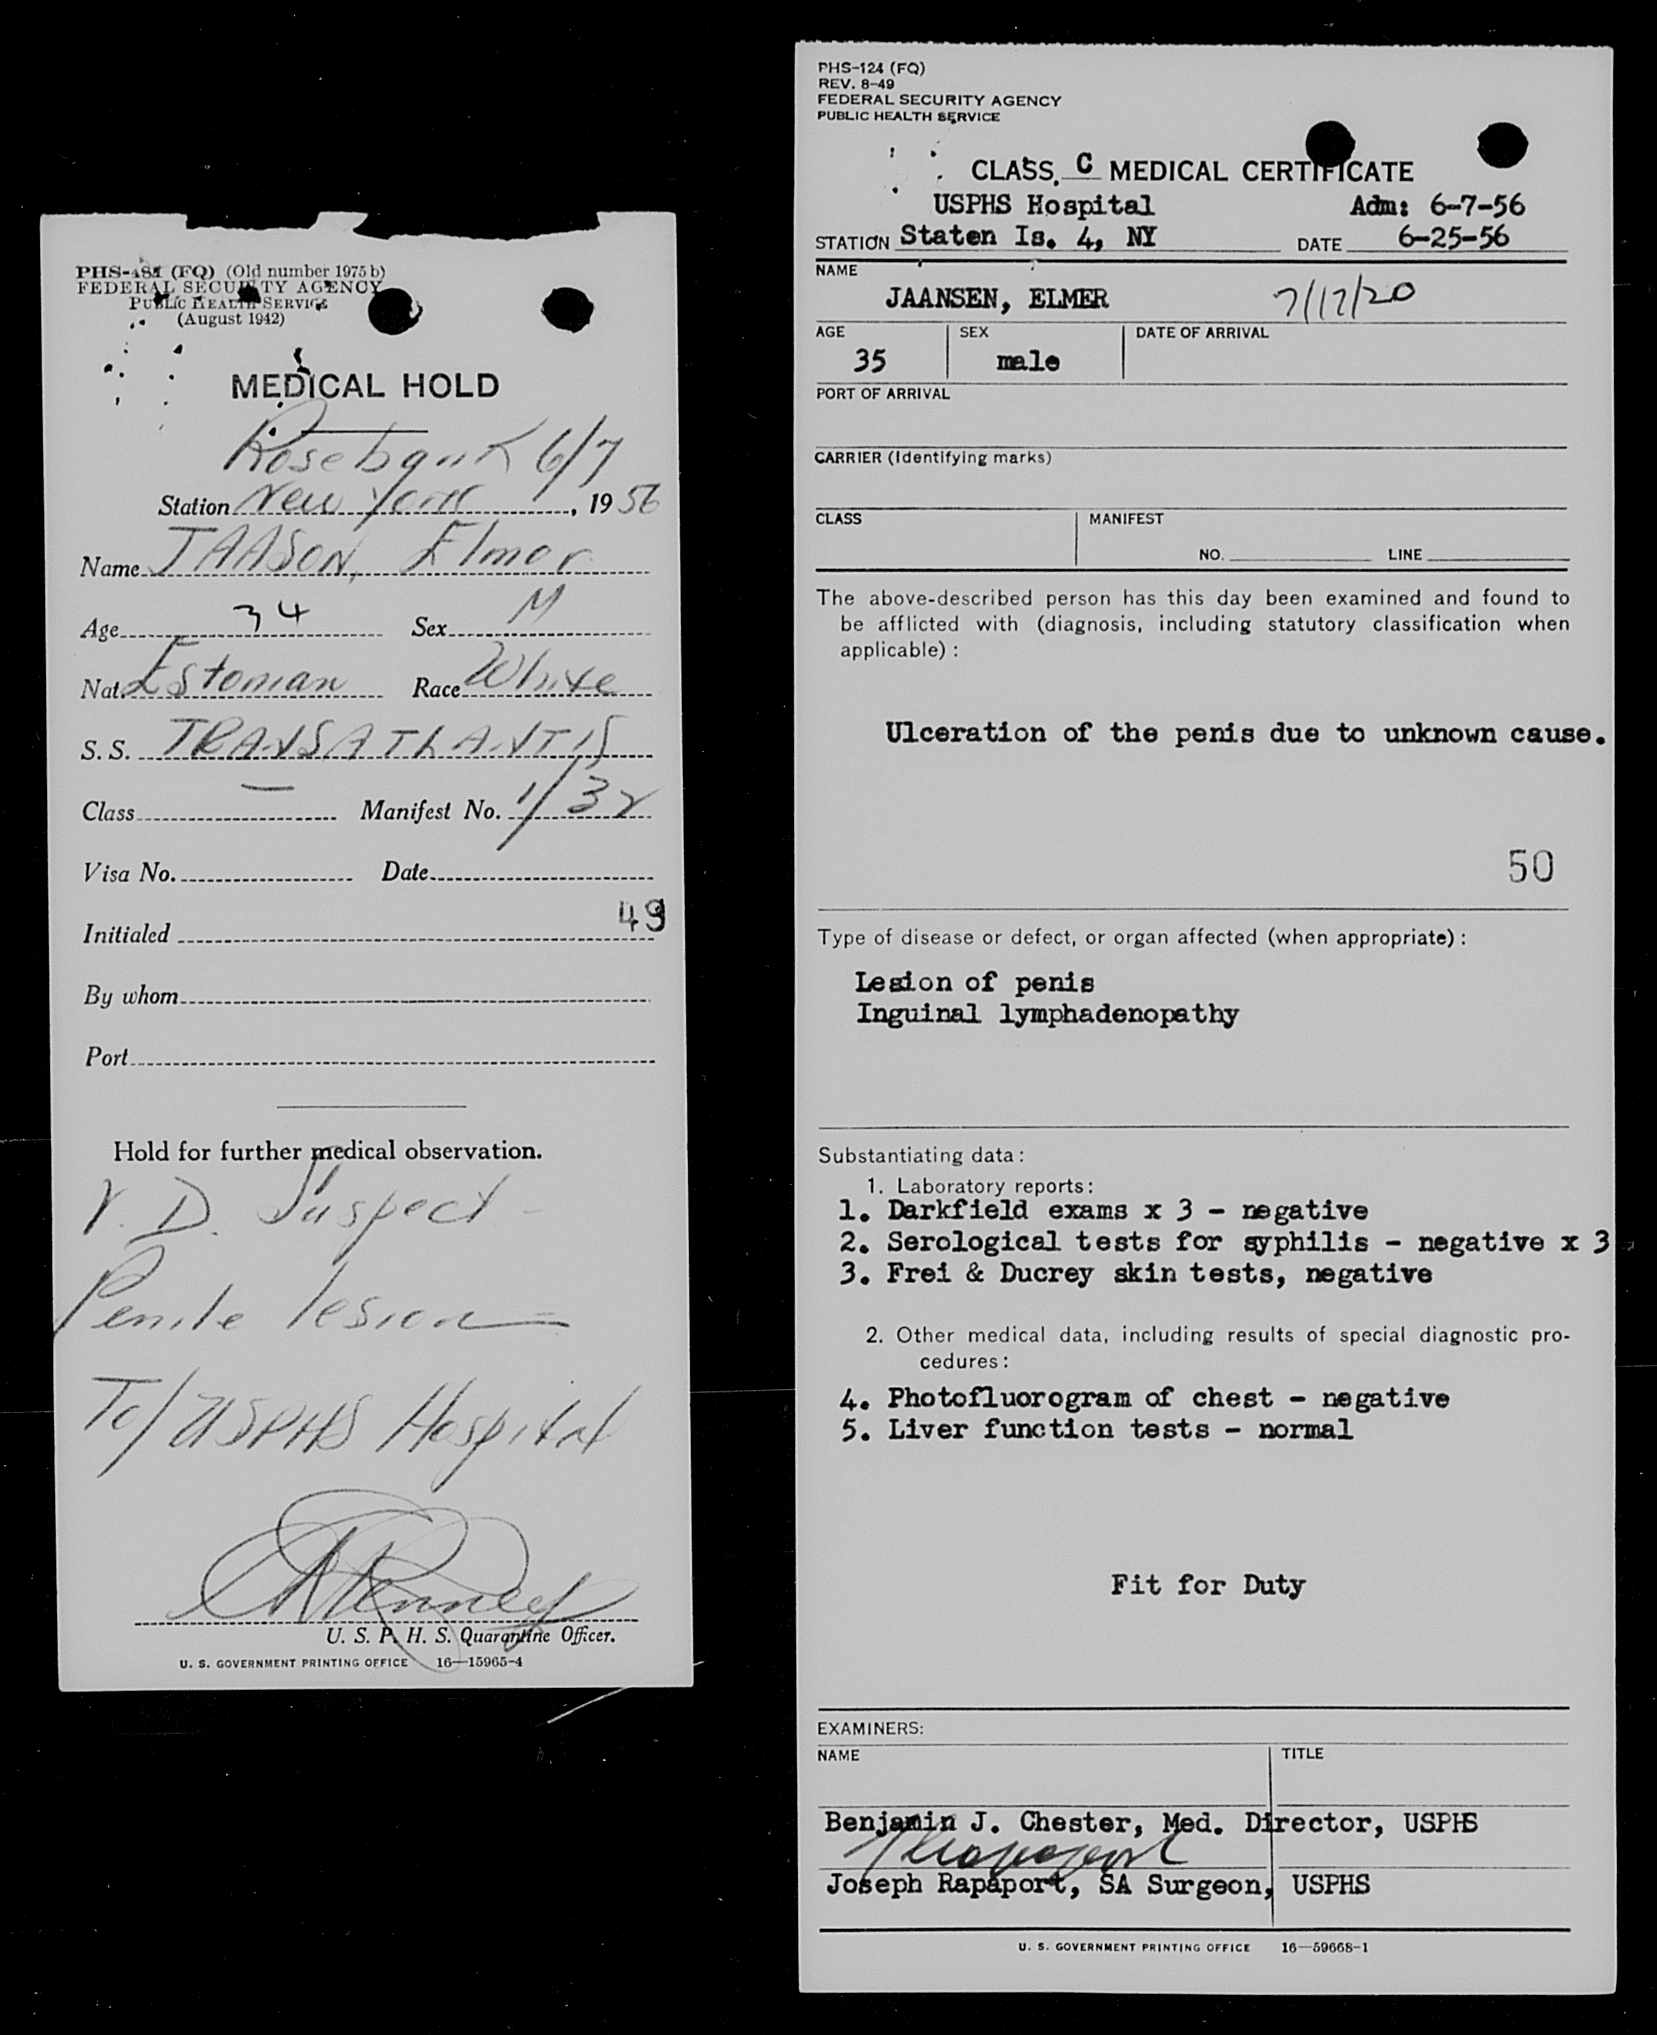 PHS-181 (FQ) (Old number 1975 b)
FEDERAL SECURITY AGENCY
PUBLIC HEALTH SERVICE
(August 1942)
MEDICAL HOLD
Rosebank 6/7
Station New York, 1956
Name JAASON, Elmar
Age 34 Sex M
Nat. Estonian Race White
S. S. TRANSATLANTIS
Class — Manifest No. 1/32
Visa No. Date
49
Initialed
By whom
Port
Hold for further medical observation.
V. D. Suspect -
Penile lesion =
To/ USPHS Hospital
U. S. P. H. S. Quarantine Officer.
U. S. GOVERNMENT PRINTING OFFICE 16—15965-4
PHS-124 (FQ)
REV. 8-49
FEDERAL SECURITY AGENCY
PUBLIC HEALTH SERVICE
CLASS C MEDICAL CERTIFICATE
USPHS Hospital Adm: 6-7-56
STATION Staten Is. 4, NY DATE 6-25-56
NAME
JAANSEN, ELMER 7/17/20
AGE SEX DATE OF ARRIVAL
35 male
PORT OF ARRIVAL
CARRIER (Identifying marks)
CLASS MANIFEST
NO. LINE
The above-described person has this day been examined and found to
be afflicted with (diagnosis, including statutory classification when
applicable) :
Ulceration of the penis due to unknown cause.
50
Type of disease or defect, or organ affected (when appropriate) :
Lesion of penis
Inguinal lymphadenopathy
Substantiating data :
1. Laboratory reports :
1. Darkfield exams x 3 - negative
2. Serological tests for syphilis - negative x 3
3. Frei & Ducrey skin tests, negative
2. Other medical data, including results of special diagnostic pro-
cedures :
4. Photofluorogram of chest - negative
5. Liver function tests - normal
Fit for Duty
EXAMINERS:
NAME TITLE
Benjamin J. Chester, Med. Director, USPHS
Joseph Rapaport, SA Surgeon, USPHS
U. S. GOVERNMENT PRINTING OFFICE 16—59668-1